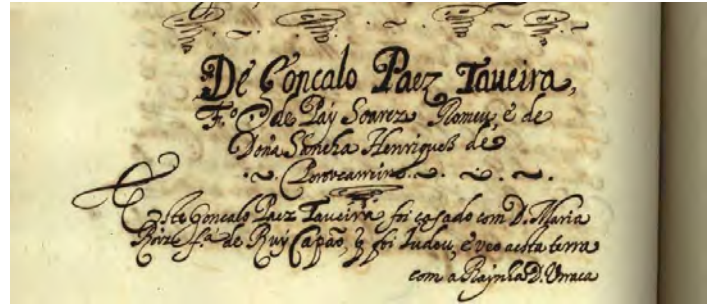 De Gonçalo Paez Taveira,
F.º de Paÿ Soarez Romeu, e de
Dona Sancha Henriques de
Portocarreiro
Este Goncalo Paez Taveira foi casado com D. Maria
Roiz f.ª de Ruÿ Capão, q̃ foi Judeu, e veo aesta terra
com a Raÿnha D. Urraca